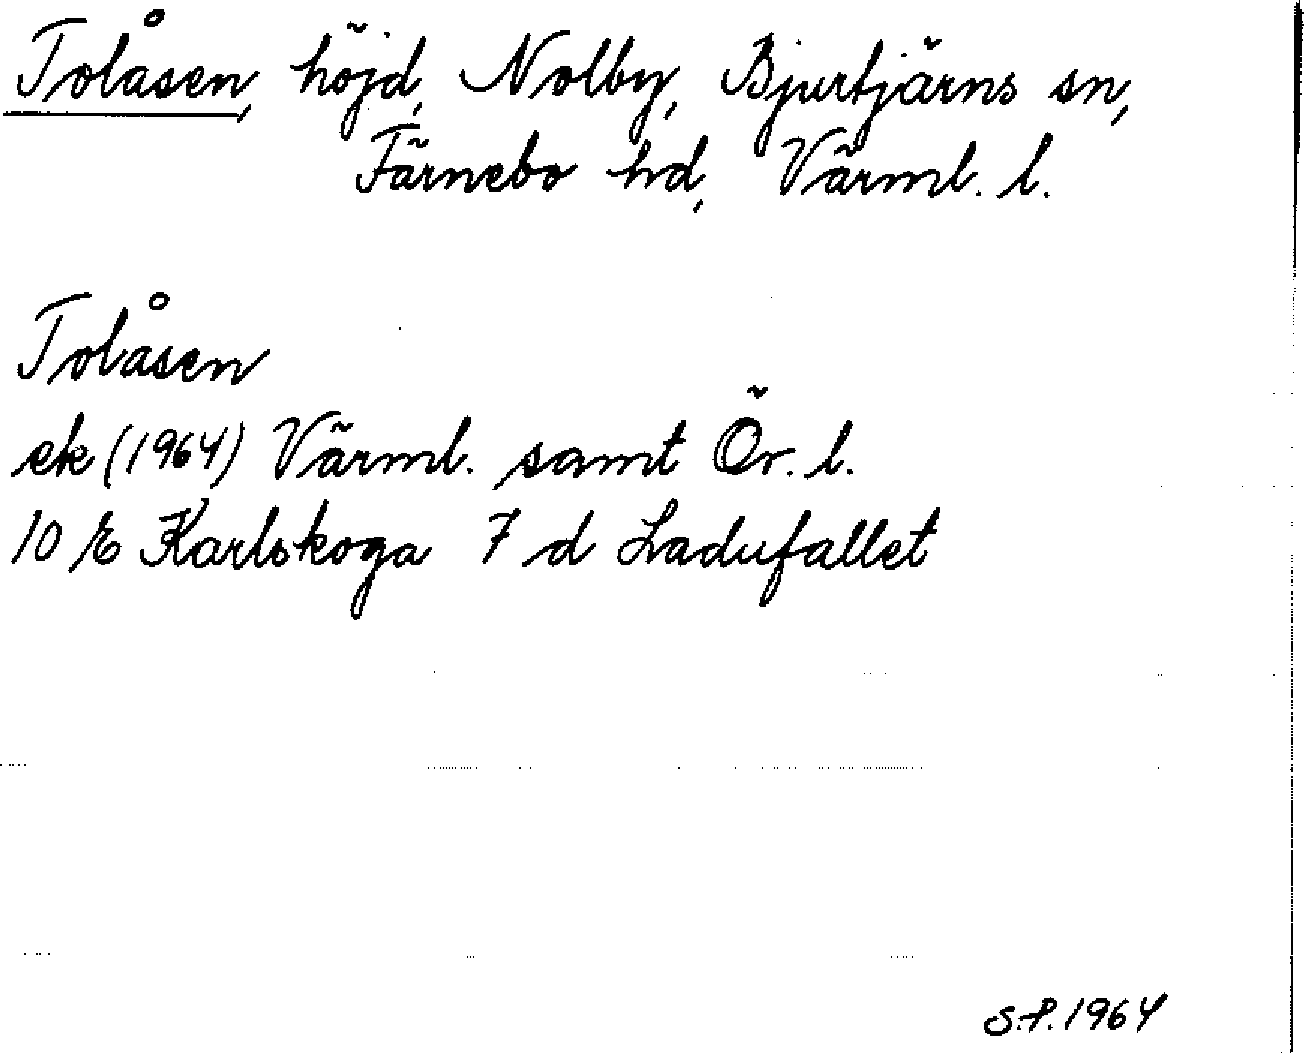 Tolåsen, höjd, Nolby, Bjurtjärns sn,
Färnebo hd, Värml. l.
Tolåsen
ek (1964) Värml. samt Ör. l.
10 E Karlskoga 7 d Ladufallet
S.P. 1964